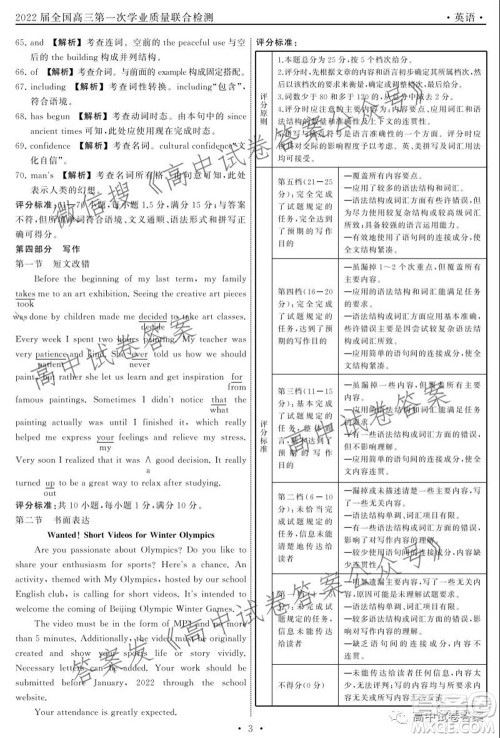 2022 届全国高三第一次学业质量联合检测
·英语·
65. and 【解析】考查连词。空前的 the peaceful use 与空
后的 the building 构成并列结构。
66. of 【解析】考查介词。与前面的 example 构成固定搭配。
67. including 【解析】考查词性转换。including“包含”,
符合语境。
68. has begun 【解析】考查动词时态。由本句中的 since
ancient times 可知,此处应使用现在完成时态。
69. confidence 【解析】考查名词。cultural confidence“文
化自信”。
70. man's 【解析】考查名词所有格。由句意可知,此处
表示人类的幻想。
评分标准:61~70 小题,每小题 1.5 分,满分 15 分;与答案
不符,但所填单词符合语境、文义通顺、语法形式和拼写正
确可得分。
第四部分 写作
第一节 短文改错
Before the beginning of my last term, my family
takes me to an art exhibition. Seeing the creative art pieces
took
was done by children made me decided to take an art class.
decide
Every week I spent two hours painting. My teacher was
very patience and kind. She ever told us how we should
patient never
paint, but rather she let us learn and get inspiration for
from
famous paintings. Sometimes I thought that the
what
painting actually was until I started to paint. It really
helped me express your feelings and relieve my stress.
my
Very soon I realized that it was ∧ good decision. It really
a
turned up to be a great way to relax ourselves.
out
评分标准:共 10 小题,每小题 1 分,满分 10 分。
第二节 书面表达
Wanted! Short Videos for Winter Olympics
Are you passionate about Olympics? Do you like to
share your enthusiasm for sports? Here's a chance. An
activity, themed with My Olympics, hosted by our school
English club, is calling for short videos. It's intended to
welcome the coming of Beijing Olympic Winter Games.
The video must be in the form of MP4 and no more
than 5 minutes. Additionally, the video must be originally
created and show your sports life or healthy lifestyle.
Necessary letters can be added. Your work should be
submitted before January, 2022 through the school
website.
Your attendance is greatly expected.
评分标准:
评分原则
1.本题总分为 25 分,按 5 个档次给分。
2.评分时,先根据文章的内容和语言初步确定其所属档次,然
后以该档次的要求来衡量,确定或调整档次,最后给分。
3.词数少于 80 和多于 120 的,从总分中减去 2 分。
评分标准
第五档(21—25
分):完全完成
了试题规定的
任务,完全达到
了预期的写作
目的
—覆盖所有内容要点。
—应用了较多的语法结构和词汇。
—语法结构或词汇方面有些许错误,但
为尽力使用较复杂结构或较高级词汇
所致;具备较强的语言运用能力。
—有效地使用了语句间的连接成分,使
全文结构紧凑。
第四档(16—20
分):完全完成
了试题规定的
任务,达到了预
期的写作目的
—虽漏掉 1~2 个次重点,但覆盖所有
主要内容。
—应用的语法结构和词汇能满足任务
的要求。
—语法结构或词汇方面应用基本准确,
些许错误主要是因尝试较复杂语法结
构或词汇所致。
—应用简单的语句间的连接成分,使全
文结构紧凑。
第三档(11—15
分):基本完成
了试题规定的
任务,整体而
言,基本达到了
预期的写作目
的
—虽漏掉一些内容,但覆盖所有主要
内容。
—应用的语法结构和词汇能满足任务
的要求。
—有一些语法结构或词汇方面的错误,
但不影响理解。
—应用简单的语句间的连接成分,使全
文内容连贯。
第二档(6—10
分):未恰当完
成了试题规定
的任务,信息未
能清楚地传达
给读者
—漏掉或未描述清楚一些主要内容,写
了一些无关内容。
—语法结构单调、词汇项目有限。
—有一些语法结构或词汇方面的错误,
影响了对写作内容的理解。
—较少使用语句间的连接成分,内容缺
少连贯性。
—明显遗漏主要内容,写了一些无关内
—语法结构单调、词汇项目有限。
—缺乏语句间的连接成分,内容不
连贯。
不得分(0 分)
—未能传达给读者任何信息;内容太
少,无法评判;写的内容均与所要求内
容无关或所写内容无法看清。
· 3 ·
微信搜《高中试卷答案公众号》
高中试卷答案
高中试卷答案
答案发《高中试卷答案公众号》
高中试卷答案